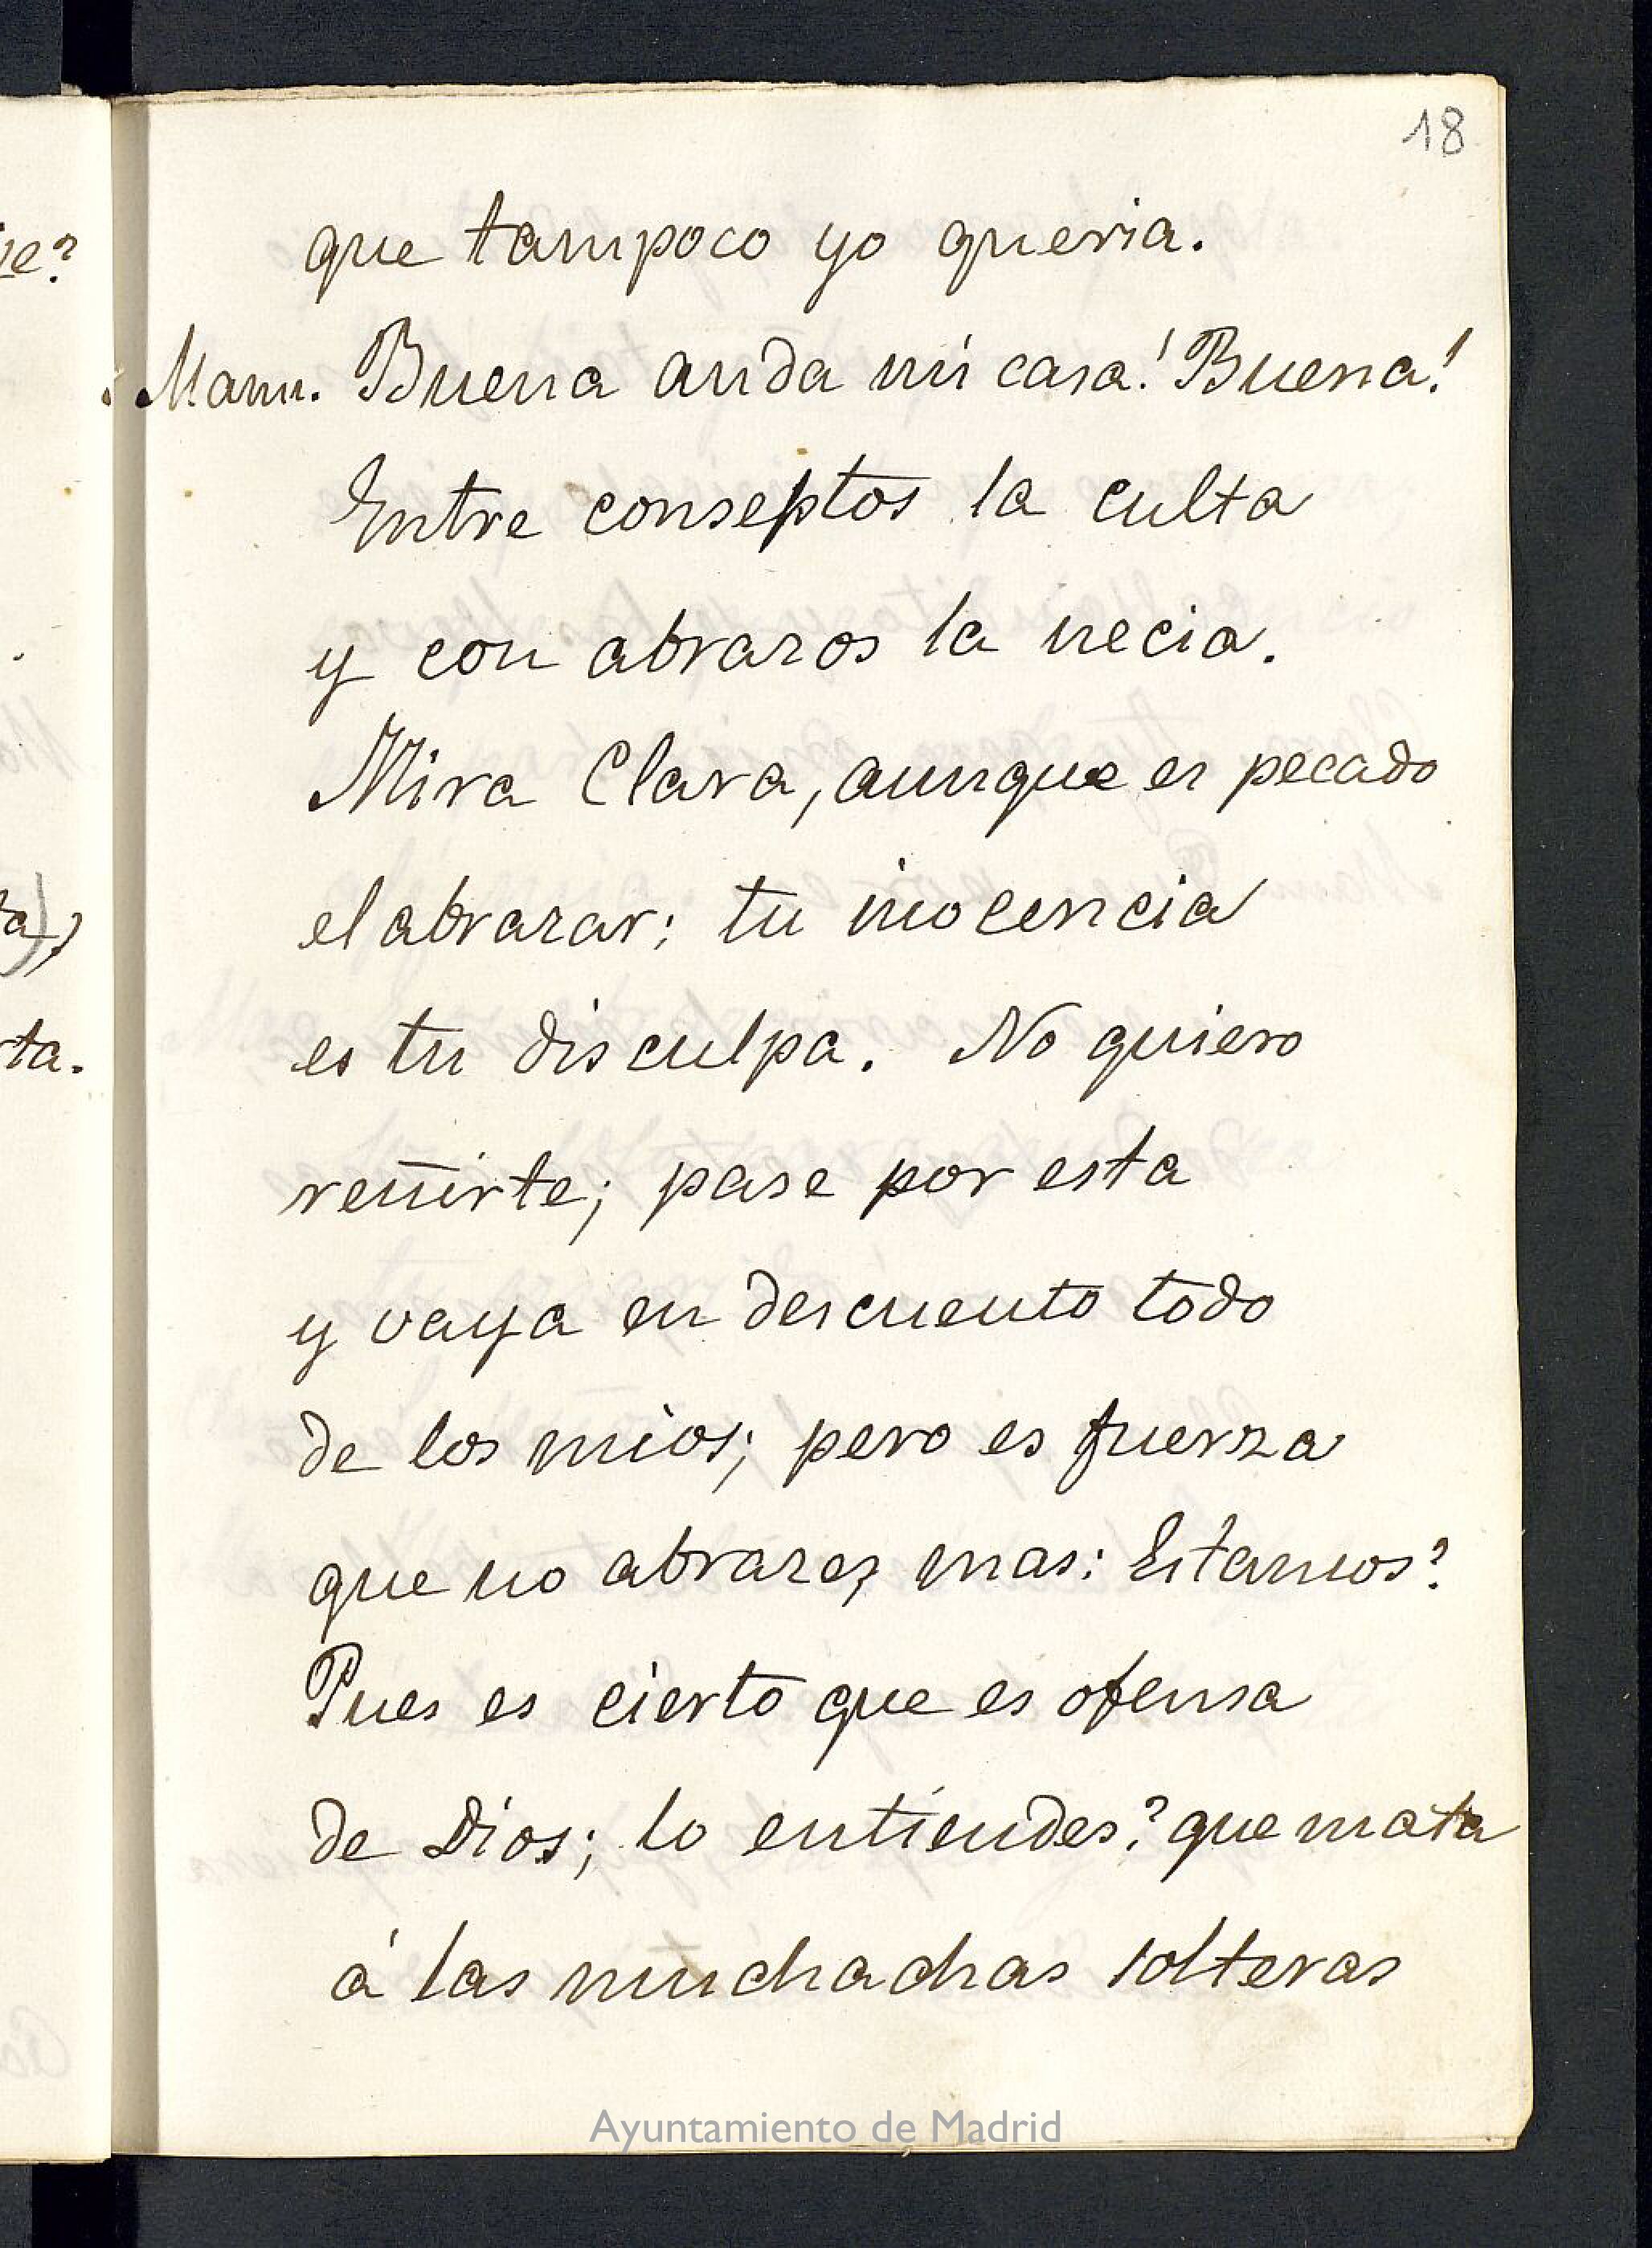 18
que tampoco yo queria.
Manu. Buena anda mi casa! Buena!
Entre conseptos la culta
y con abrazos la necia.
Mira Clara, aunque es pecado
el abrazar; tu inocencia
es tu disculpa. No quiero
reñirte; pase por esta
y vaya en descuento todo
de los mios; pero es fuerza
que no abrazes mas: Estamos?
Pues es cierto que es ofensa
de Dios; lo entiendes? que mata
á las muchachas solteras
Ayuntamiento de Madrid